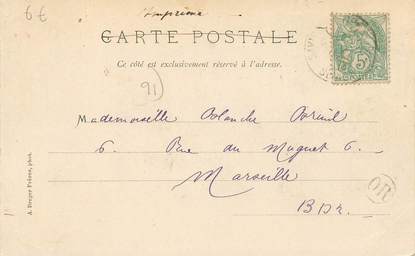 6€
Imprimé
CARTE POSTALE
Ce côté est exclusivement réservé à l'adresse.
91
5
Mademoiselle Blanche
6. Rue du Muguet 6.
Marseille
B D R.
OR
A. Breger Frères, phot.